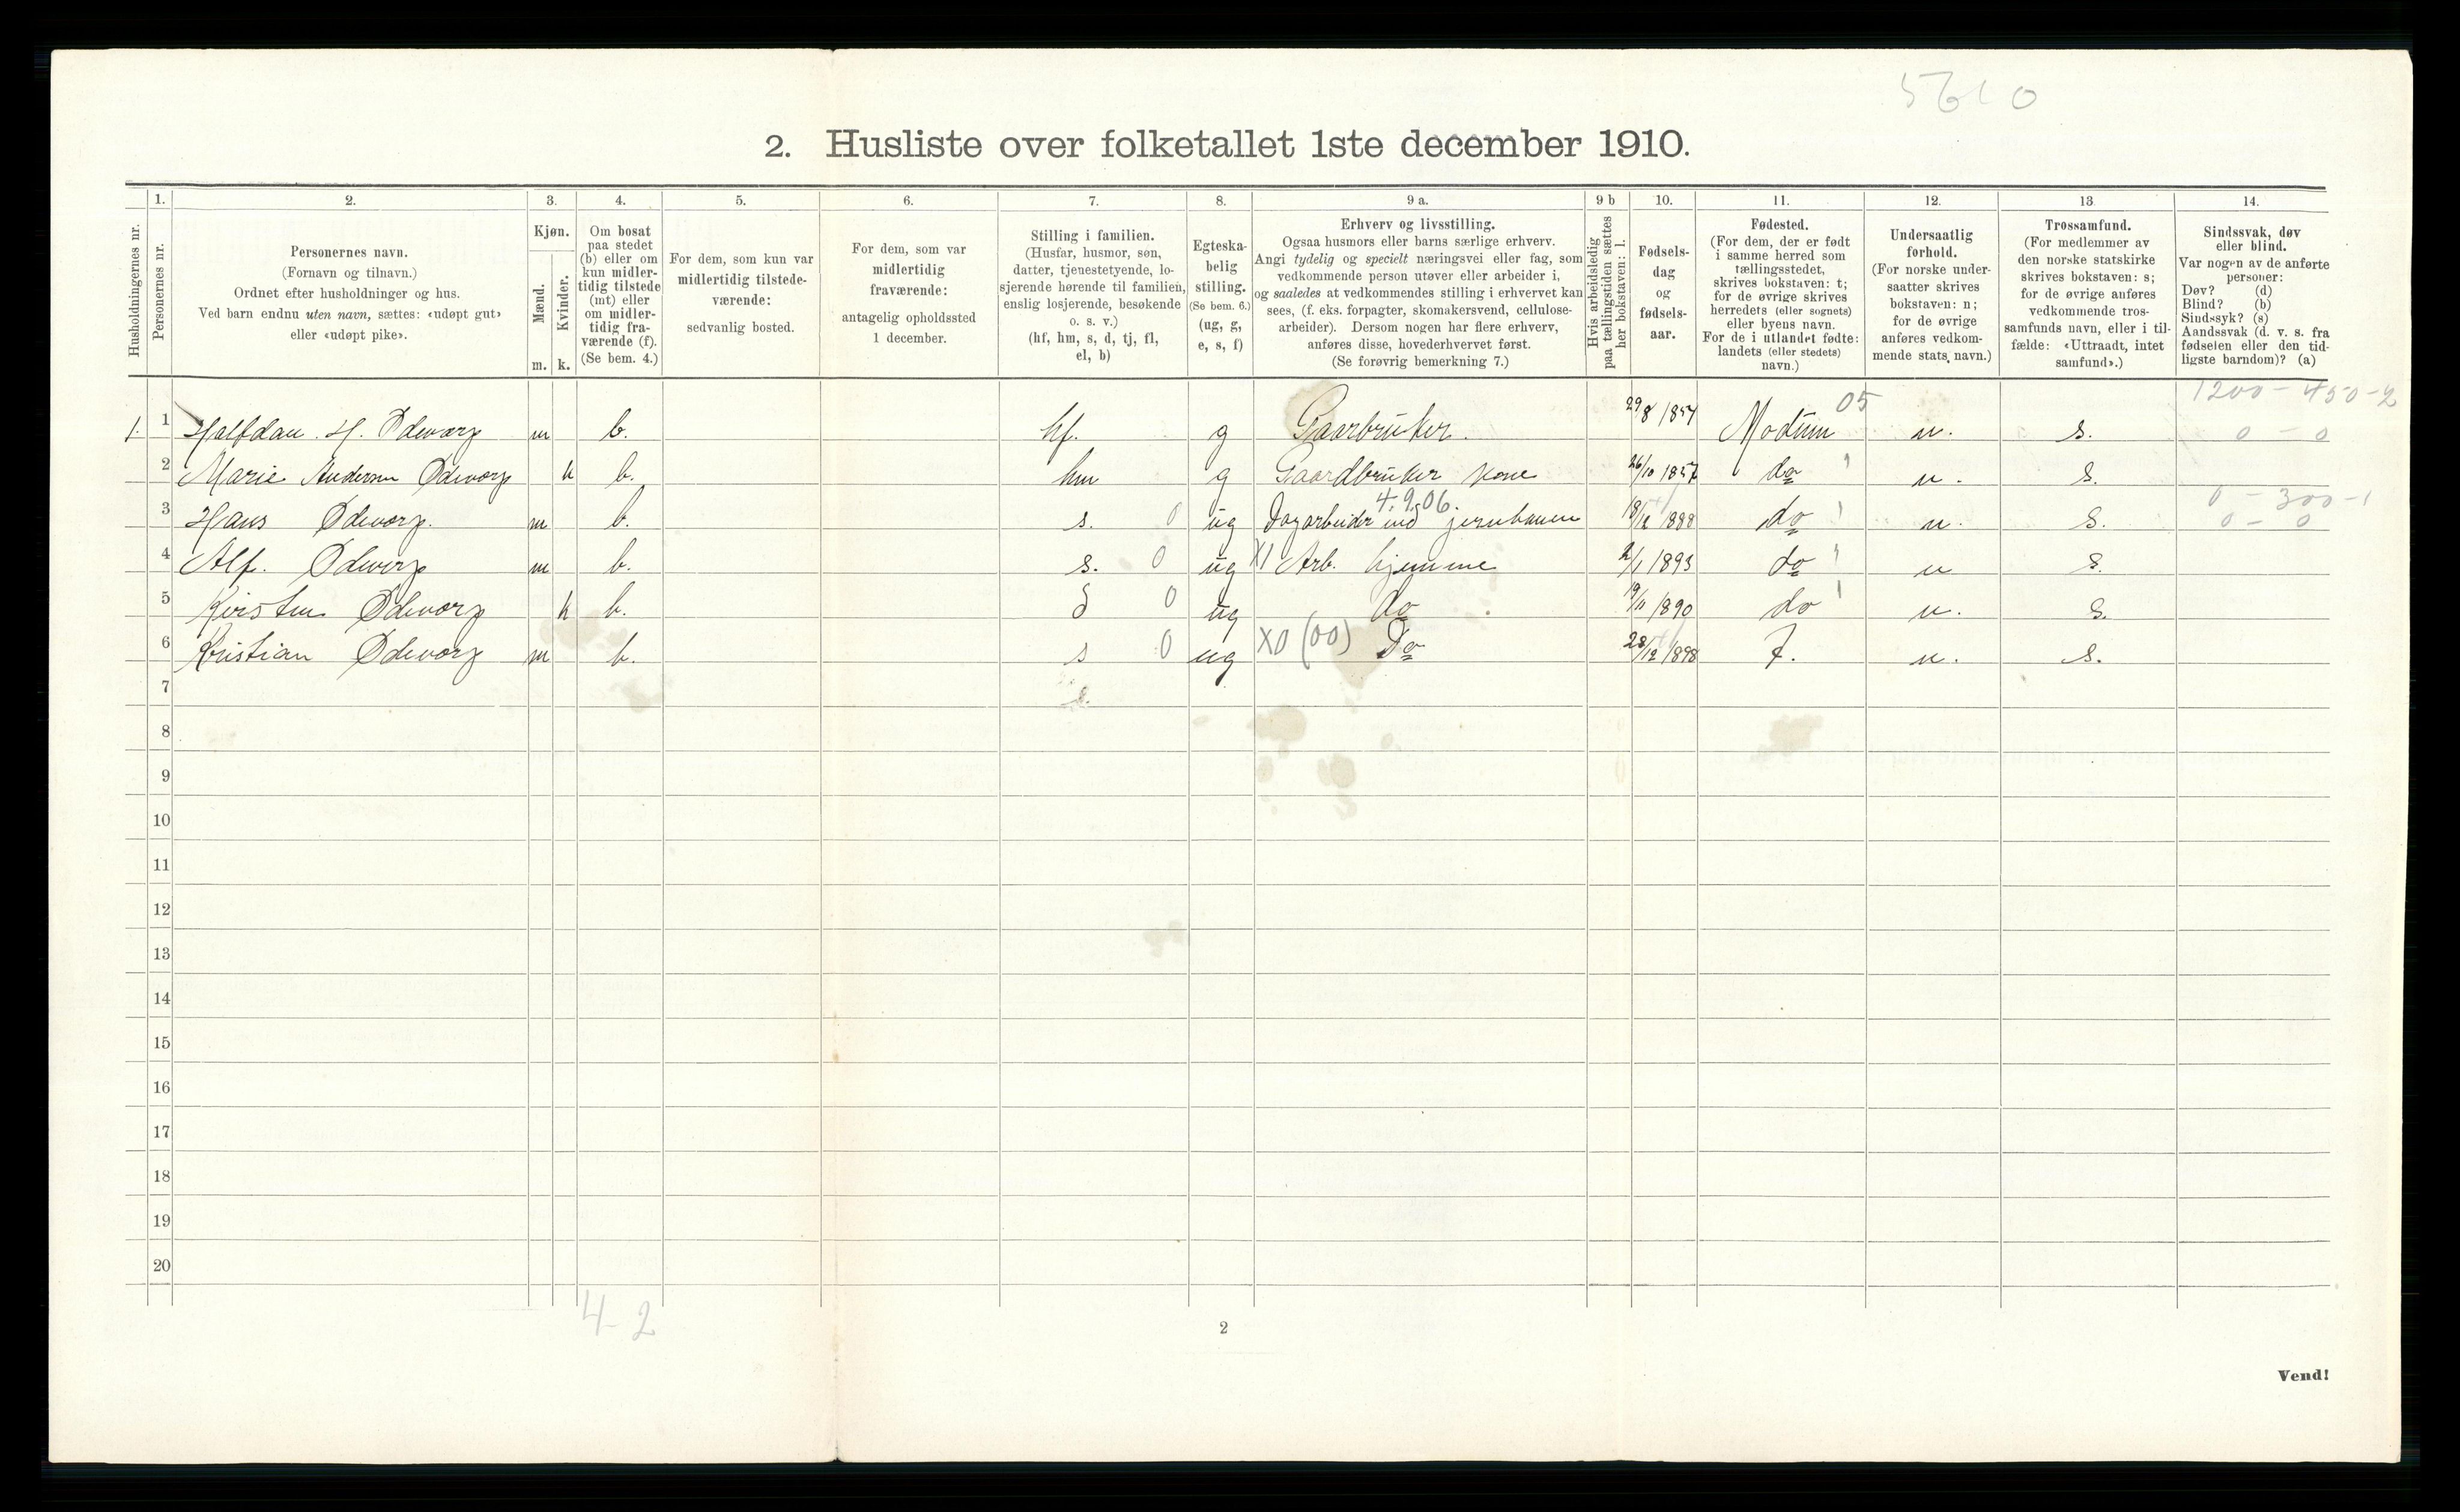 5610
2. Husliste over folketallet 1ste december 1910.
Husholdningernes nr.
1. Personernes nr.
2. Personernes navn.
(Fornavn og tilnavn.)
Ordnet efter husholdninger og hus.
Ved barn endnu uten navn, sættes: «udøpt gut»
eller «udøpt pike».
3. Kjøn.
Mænd. m.
Kvinder. k.
4. Om bosat
paa stedet
(b) eller om
kun midler-
tidig tilstede
(mt) eller
om midler-
tidig fra-
værende (f).
(Se bem. 4.)
5. For dem, som kun var
midlertidig tilstede-
værende:
sedvanlig bosted.
6. For dem, som var
midlertidig
fraværende:
antagelig opholdssted
1 december.
7. Stilling i familien.
(Husfar, husmor, søn,
datter, tjenestetyende, lo-
sjerende hørende til familien,
enslig losjerende, besøkende
o. s. v.)
(hf, hm, s, d, tj, fl,
el, b)
8. Egteska-
belig
stilling.
(Se bem. 6.)
(ug, g,
e, s, f)
9 a. Erhverv og livsstilling.
Ogsaa husmors eller barns særlige erhverv.
Angi tydelig og specielt næringsvei eller fag, som
vedkommende person utøver eller arbeider i,
og saaledes at vedkommendes stilling i erhvervet kan
sees, (f. eks. forpagter, skomakersvend, cellulose-
arbeider). Dersom nogen har flere erhverv,
anføres disse, hovederhvervet først.
(Se forøvrig bemerkning 7.)
9 b Hvis arbeidsledig
paa tællingstiden sættes
her bokstaven: l.
10. Fødsels-
dag
og
fødsels-
aar.
11. Fødested.
(For dem, der er født
i samme herred som
tællingsstedet,
skrives bokstaven: t;
for de øvrige skrives
herredets (eller sognets)
eller byens navn.
For de i utlandet fødte:
landets (eller stedets)
navn.)
12. Undersaatlig
forhold.
(For norske under-
saatter skrives
bokstaven: n;
for de øvrige
anføres vedkom-
mende stats navn.)
13. Trossamfund.
(For medlemmer av
den norske statskirke
skrives bokstaven: s;
for de øvrige anføres
vedkommende tros-
samfunds navn, eller i til-
fælde: «Uttraadt, intet
samfund».)
14. Sindssvak, døv
eller blind.
Var nogen av de anførte
personer:
Døv? (d)
Blind? (b)
Sindssyk? (s)
Aandssvak (d. v. s. fra
fødselen eller den tid-
ligste barndom)? (a)
1200 - 450 - 2
05
1. 1 Halfdan. H. Ødevorp m b. hf. g Gaarbruker. 29/8 1857 Modum n. s. 0 - 0
2 Marie Andersen Ødevorp k b. hm g Gaardbruker kone 26/10 1857 do n. s.
4.9.06. 0 - 300 - 1
3 Hans Ødevorp. m b. s. 0 ug Dagarbeider jernbanen 18/12 1888 do n. s. 0 - 0
4 Alf. Ødevorp m b. s. 0 ug X1 Arb. hjemme 2/1 1893 do n s.
5 Kirsten Ødevorp k b. d 0 ug do 19/11 1890 do n. s.
6 Kristian Ødevorp m b. s 0 ug X0 (00) Do 28/12 1898 n. s.
7
8
9
10
11
12
13
14
15
16
17
18
19
20
4-2
2
Vend!